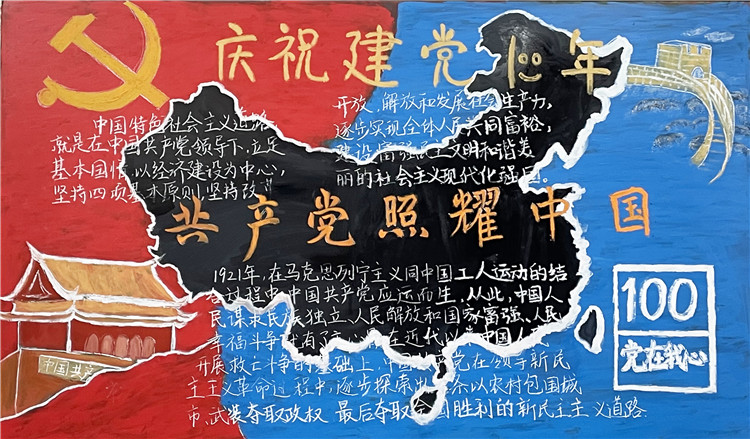 庆祝建党100年
中国特色社会主义道路,
就是在中国共产党领导下,立足
基本国情,以经济建设为中心,
坚持四项基本原则,坚持改
开放,解放和发展社会生产力,
逐步实现全体人民共同富裕,
建设富强民主文明和谐美
丽的社会主义现代化强国。
共产党照耀中国
1921年,在马克思列宁主义同中国工人运动的结
合过程中,中国共产党应运而生,从此,中国人
民谋求民族独立、人民解放和国家富强、人民
幸福斗争就有了 在近代以 中国人民
开展救亡斗争的基础上,中国 党在领导新民
主主义革命过程中,逐步探索出 条以农村包围城
市、武装夺取政权 最后夺取全国胜利的新民主主义道路
100
党在我心
中国共产